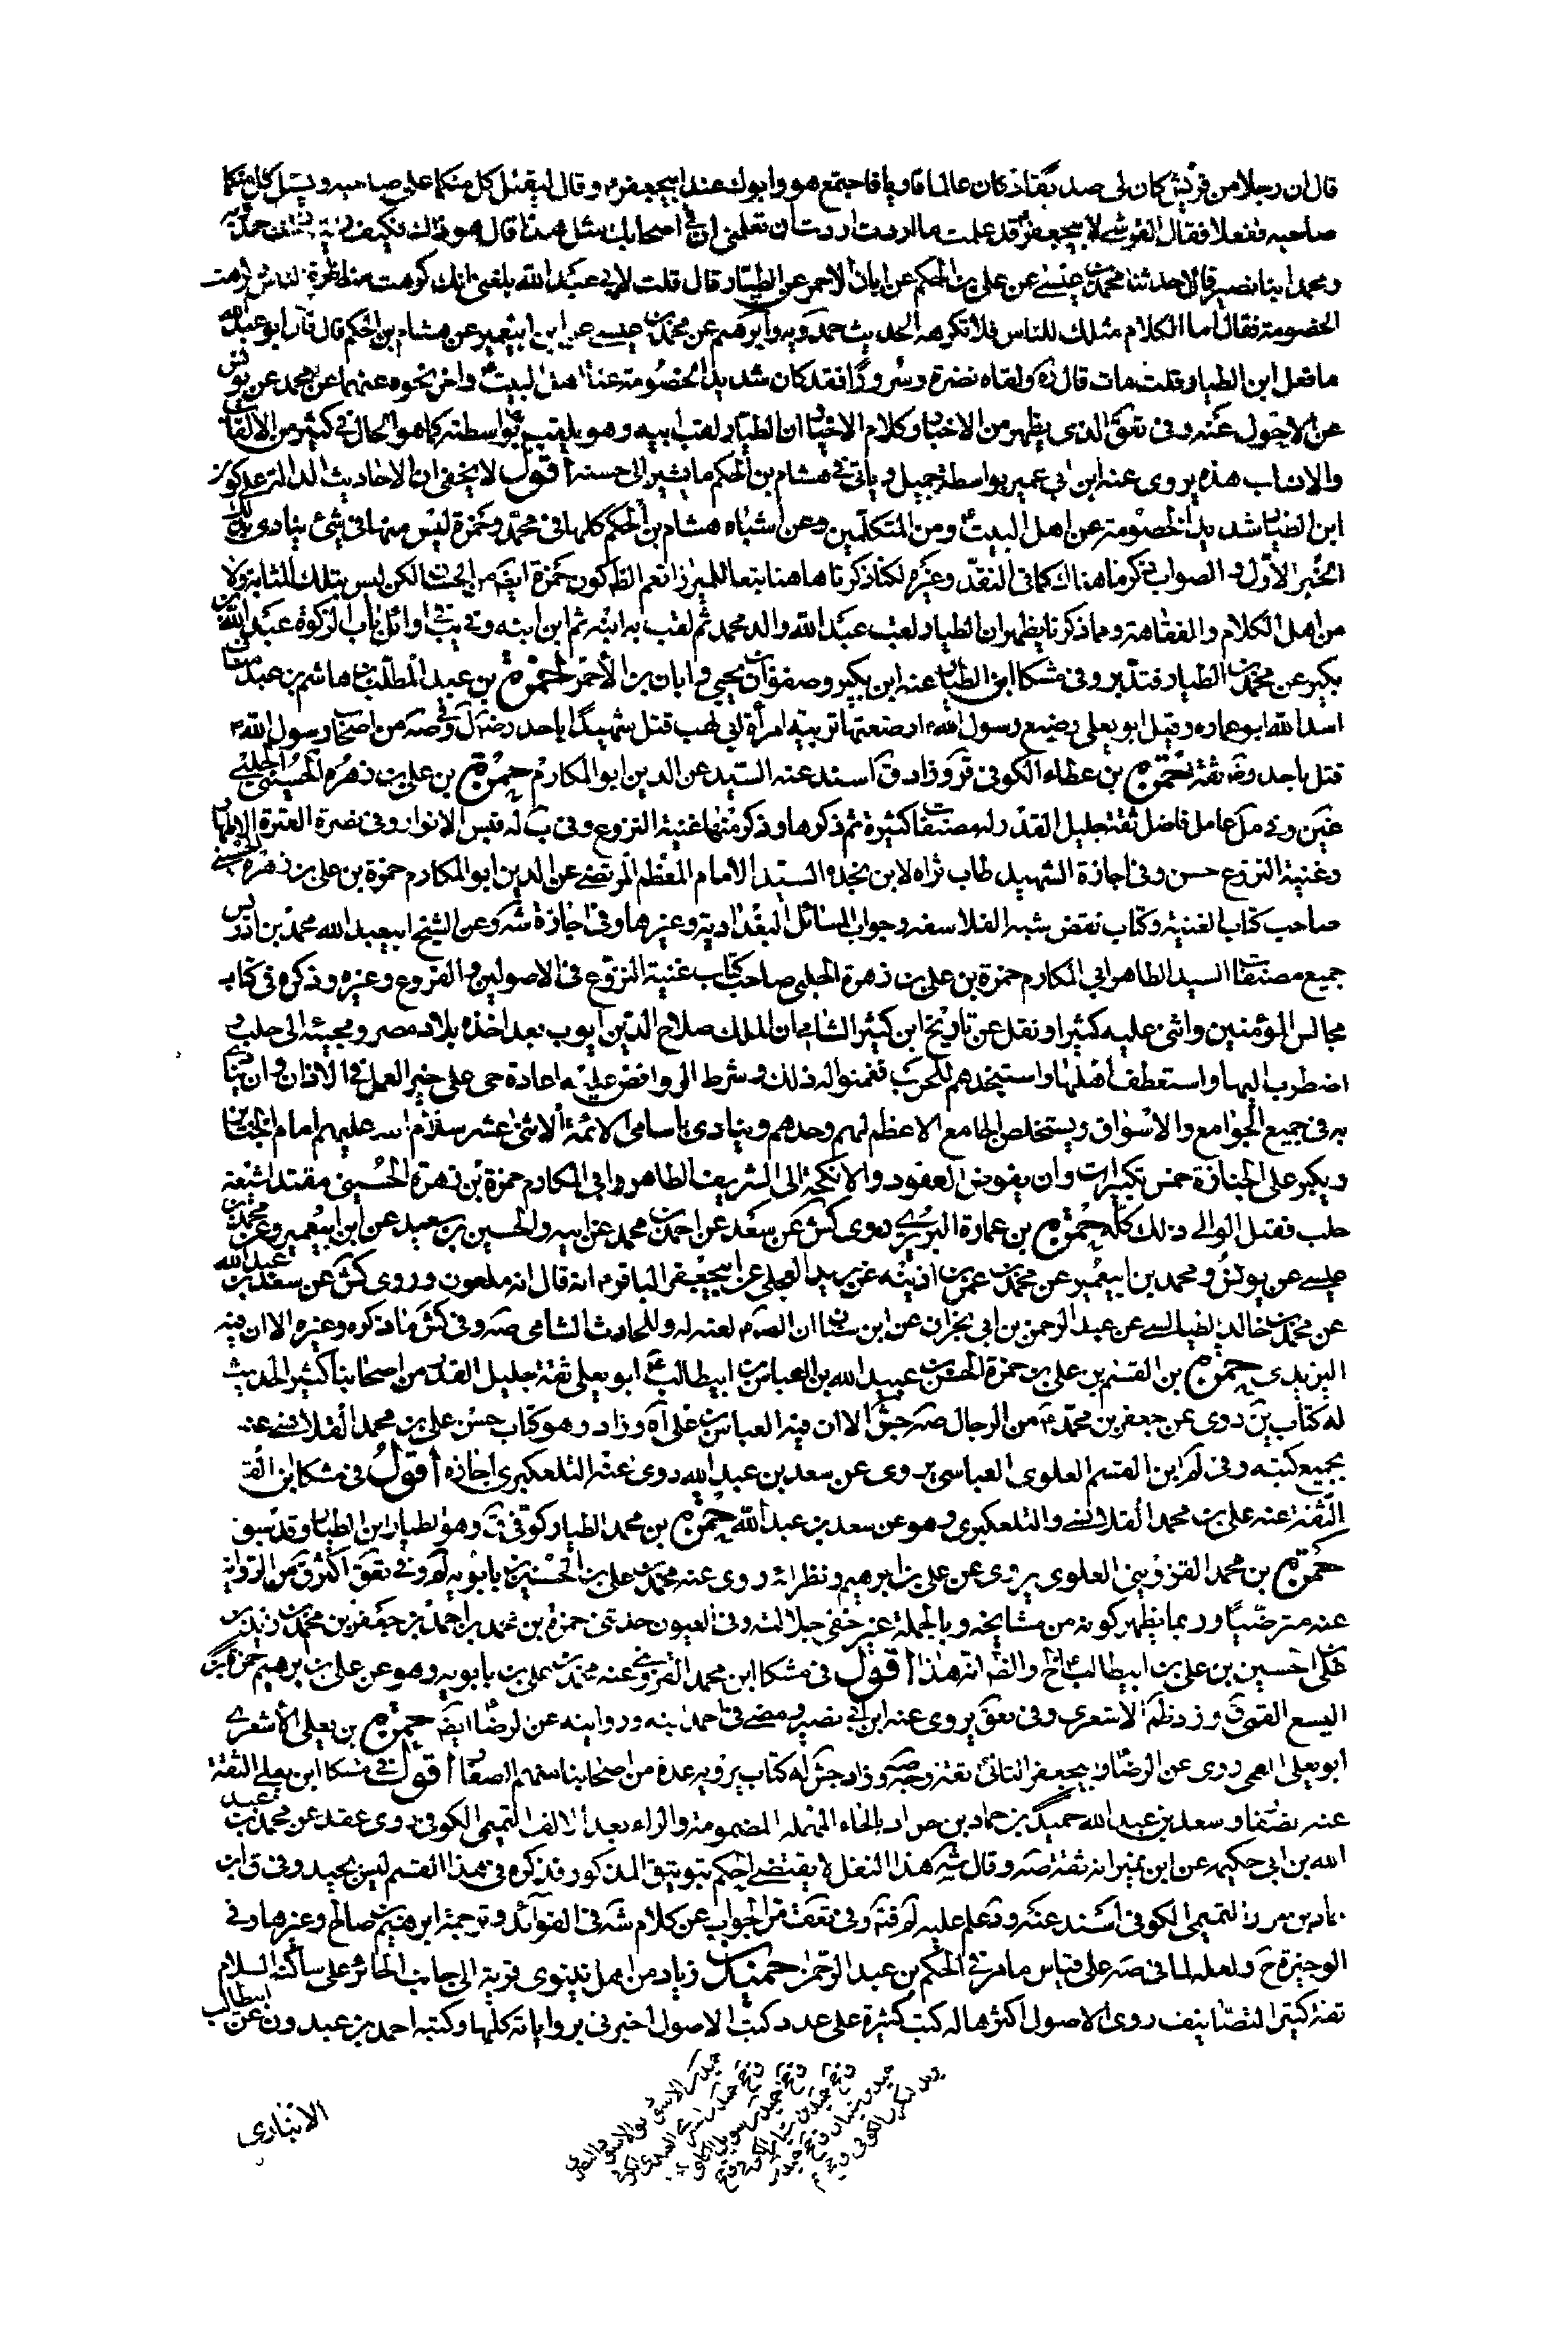 قال ان رجلا من قريش كان لى صديقا وكان عالما قاريا فاجتمع هو وابوك عند ابيجعفر ع وقال ليقبل كل منكما على صاحبه ويسئل كل منكما
صاحبه ففعلا فقال القرشى لابيجعفر ع قد علمت ما اردت اردت ان تعلمنى ان فى اصحابك مثل هذا قال هو ذاك فكيف رايت حمدويه
ومحمد ابنا نصير قالا حدثنا محمد بن عيسى عن على بن الحكم عن ابان الاحمر عن الطيار قال قلت لابى عبد الله بلغنى انك كرهت مناظرة الناس
الخصومة فقال اما الكلام مثلك للناس فلا نكرهه الحديث حمدويه وابرهيم عن محمد بن عيسى عن ابن ابيعمير عن هشام بن الحكم قال قال ابو عبد الله
ما فعل ابن الطيار قلت مات قال ره ولقاه نضرة وسرورا فقد كان شديد الخصومة عنا اهل البيت ع واخر نحوه عنهما عن محمد عن يونس
عن الاحول عنه وفى تعق الذى يظهر من الاخبار وكلام الاخيار ان الطيار لقب ابيه وهو يلقب بواسطته كما هو الحال فى كثير من الالقاب
والانساب هذه يروى عنه ابن ابى عمير بواسطة جميل وياتى فى هشام بن الحكم ما يشير الى حسنه اقول لا يخفى ان الاحاديث الدالة على كون
ابن الطيار شديد الخصومة عن اهل البيت ع ومن المتكلمين وعن اشباه هشام بن الحكم كلها فى محمد وحمزة ليس منها فى شئ ينادى بذلك
الخبر الاول والصواب ذكرها هناك كما فى النقد وغيره لكنا ذكرناها هنا تبعا للميرزا نعم الظ كون حمزة ايضا من الحسان لكن ليس بتلك المثابة ولا
من اهل الكلام والفقاهة ومما ذكرنا يظهر ان الطيار لقب عبد الله والد محمد ثم لقب به ابنه ثم ابن ابنه وفى يب فى اوائل باب الزكوة عبد الله بن
بكير عن محمد بن الطيار فتدبر وفى مشكا ابن الطيار عنه ابن بكير وصفوان بن يحيى وابان بن الاحمر حمزة بن عبد المطلب بن هاشم بن عبد مناف
اسد الله ابو عماره وقيل ابو يعلى رضيع رسول الله ص ارضعتهما ثويبه امرأة ابى لهب قتل شهيدا باحد رضه ل وفى صه من اصحاب رسول الله ص
قتل باحد وه ثقة حمزة بن عطاء الكوفى ق وزاد ق اسند عنه السيد عز الدين ابو المكارم حمزة بن على بن زهره الحسينى الحلبى
عين وفى مل عامل فاضل ثقة جليل القدر له مصنفات كثيرة ثم ذكرها وذكر منها غنية النزوع وفى ب له قبس الانوار وفى نصرة العترة الاطهار
وغنية النزوع حسن وفى اجازة الشهيد طاب ثراه لابن نجده السيد الامام المعظم المرتضى عز الدين ابو المكارم حمزة بن على بن زهره الحسينى
صاحب كتاب الغنية وكتاب نقض شبه الفلاسفه وجواب المسائل البغدادية وغيرها وفى اجازة شه وعن الشيخ ابيعبد الله محمد بن ادريس
جميع مصنفات السيد الطاهر ابي المكارم حمزة بن على بن زهرة الحلبى صاحب كتاب غنية النزوع فى الاصولين والفروع وغيره وذكره فى كتاب
مجالس المؤمنين واثنى عليه كثيرا ونقل عن تاريخ ابن كثير الشامى ان الملك صلاح الدين ايوب بعد اخذه بلاد مصر ومجيئه الى حلب
اضطرب اليها واستعطف اهلها واستنجدهم للحرب فضمنوا له ذلك وشرط الروافض عليه اعادة حى على خير العمل فى الاذان وان ينادى
به فى جميع الجوامع والاسواق ويستخلص الجامع الاعظم لهم وحدهم وينادى باسامى الائمة الاثنى عشر سلام الله عليهم امام الجنائز
ويكبر على الجنازة خمس تكبيرات وان يفوض العقود والانكحة الى الشريف الطاهر ابي المكارم حمزة بن زهرة الحسينى مقتدا شيعة
حلب فقبل الوالى ذلك كله حمزة بن عمارة البربرى روى كش عن سعد عن احمد بن محمد عن ابيه والحسين بن سعيد عن ابن ابيعمير وعن محمد بن
عيسى عن يونس ومحمد بن ابيعمير عن محمد بن عمر بن اذينه عن بريد العجلى عن ابيجعفر الباقر ع انه قال انه ملعون وروى كش عن سعد بن عبد الله
عن محمد بن خالد الطيالسى عن عبد الرحمن بن ابى نجران عن ابن سنان ان الص ع لعنه له وللحارث الشامى صه وفى كش ما ذكره وغيره الا ان فيه
اليزيدى حمزة بن القسم بن على بن حمزة الحسن بن عبيد الله بن العباس بن ابيطالب ع ابو يعلى ثقة جليل القدر من اصحابنا كثير الحديث
له كتاب من روى عن جعفر بن محمد ع من الرجال صه جش الا ان فيه العباس بن على اه وزاد وهو كتاب حسن على بن محمد القلانسى عنه
بجميع كتبه وفى لم ابن القسم العلوى العباسى يروى عن سعد بن عبد الله روى عنه التلعكبرى اجازه اقول فى مشكا ابن القسم
الثقة عنه على بن محمد القلانسى والتلعكبرى وهو عن سعد بن عبد الله حمزة بن محمد الطيار كوفى ق وهو الطيار ابن الطيار وقد سبق
حمزة بن محمد القزوينى العلوى يروى عن على بن ابرهيم ونظرائه روى عنه محمد بن على بن الحسين بن بابويه لم وفى تعق اكثر ق من الرواية
عنه مترضيا وربما يظهر كونه من مشايخه وبالجملة غير خفى جلالته وفى العيون حدثنى حمزه بن محمد بن احمد بن جعفر بن محمد بن زيد بن
على الحسين بن على بن ابيطالب ع اخ والظ انه هذا اقول فى مشكا ابن محمد القزوينى عنه محمد بن على بن بابويه وهو عن على بن ابرهيم حمزة بن
اليسع القمى ق وزد ظم الاشعرى وفى تعق يروى عنه ابن ابى نصير ومضى فى احمد ابنه وروايته عن الرضا ع ايضا حمزة بن يعلى الاشعرى
ابو يعلى القمى روى عن الرضا ع وابيجعفر الثانى ثقة وجه صه وزاد جش له كتاب يرويه عدة من اصحابنا منهم الصفار اقول فى مشكا ابن يعلى الثقة
عنه الصفار وسعد بن عبد الله حميد بن حماد بن حوار بالخاء المهملة المضمومة والراء بعد الالف التميمى الكوفى روى عقد عن محمد بن عبد
الله بن ابى حكيمه عن ابن نمير انه ثقة صه وقال شه هذا النقل لا يقتضى الحكم بتوثيق المذكور فذكره فى هذا القسم ليس بجيد وفى ق ابن
حماد بن حوار التميمى الكوفى اسند عنه وتعلم عليه لم فتم وفى تعق مر الجواب عن كلام شه فى الفوائد وترجمة ابرهيم بن صالح وغيرها وفى
الوجيزة ح ولعله لما فى صه على قياس ما مر فى الحكم بن عبد الرحمن حميد بن زياد من اهل نينوى قرية الى جانب الحائر على ساكنه السلام
ثقة كثير التصانيف روى الاصول اكثرها له كتب كثيرة على عدد كتب الاصول اخبرنى برواياته كلها وكتبه احمد بن عبدون عن ابيطالب
الانبارى